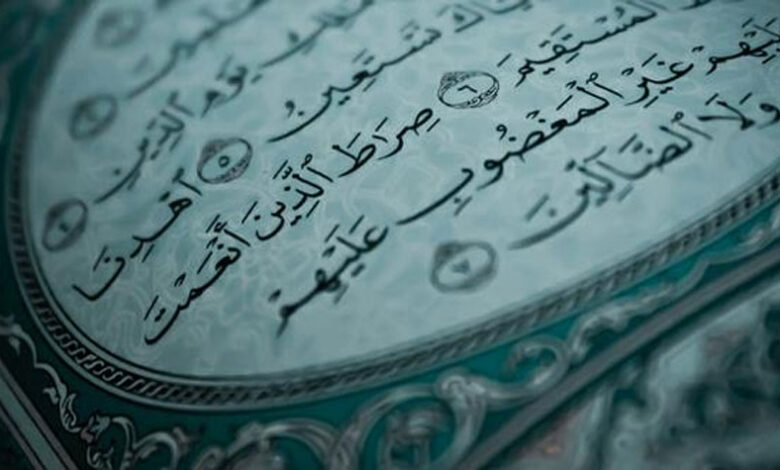 يَوْمِ ٱلدِّينِ
نَسْتَعِينُ ٥ ٱهْدِنَا
ٱلْمُسْتَقِيمَ ٦ صِرَٰطَ ٱلَّذِينَ أَنْعَمْتَ
عَلَيْهِمْ غَيْرِ ٱلْمَغْضُوبِ عَلَيْهِمْ
وَلَا ٱلضَّآلِّينَ ٧